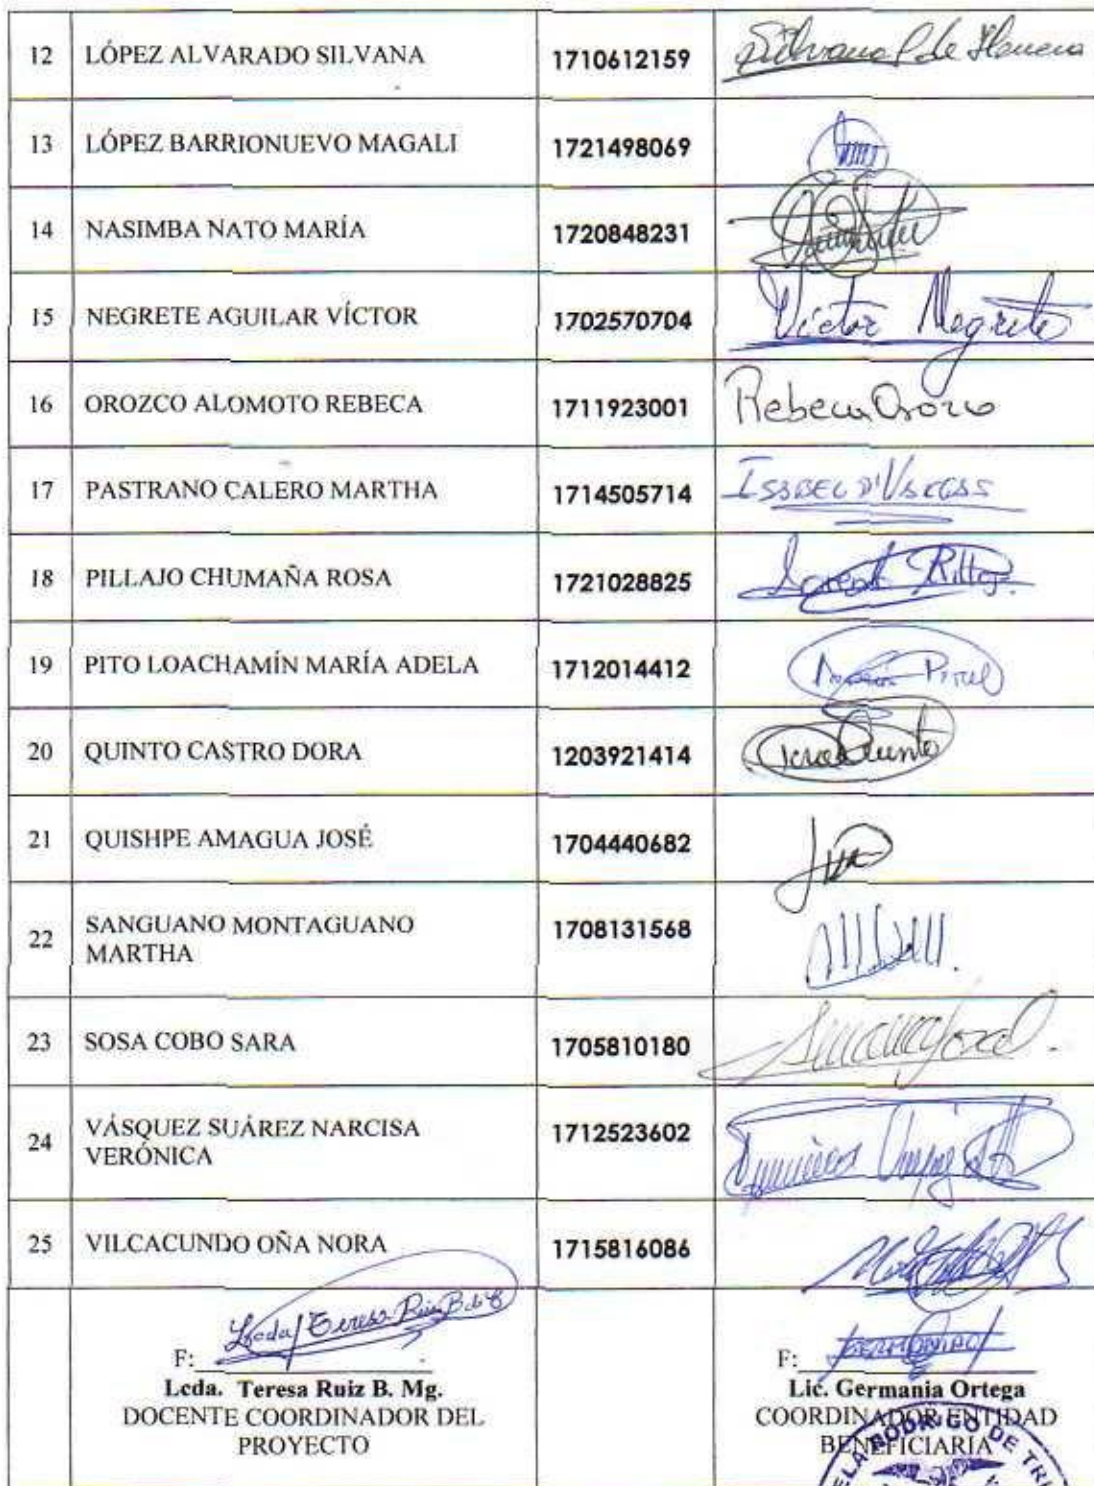 12 LÓPEZ ALVARADO SILVANA 1710612159 Silvana L de
13 LÓPEZ BARRIONUEVO MAGALI 1721498069
14 NASIMBA NATO MARÍA 1720848231
15 NEGRETE AGUILAR VÍCTOR 1702570704 Víctor Negrete
16 OROZCO ALOMOTO REBECA 1711923001 Rebeca Orozco
17 PASTRANO CALERO MARTHA 1714505714
18 PILLAJO CHUMAÑA ROSA 1721028825
19 PITO LOACHAMÍN MARÍA ADELA 1712014412
20 QUINTO CASTRO DORA 1203921414 Dora Quinto
21 QUISHPE AMAGUA JOSÉ 1704440682
22 SANGUANO MONTAGUANO
MARTHA 1708131568
23 SOSA COBO SARA 1705810180
24 VÁSQUEZ SUÁREZ NARCISA
VERÓNICA 1712523602
25 VILCACUNDO OÑA NORA 1715816086
Lcda Teresa Ruiz B. de
F:
Lcda. Teresa Ruiz B. Mg.
DOCENTE COORDINADOR DEL
PROYECTO
F:
Lic. Germania Ortega
COORDINADOR ENTIDAD
BENEFICIARIA
ELA RODRIGO DE TRI